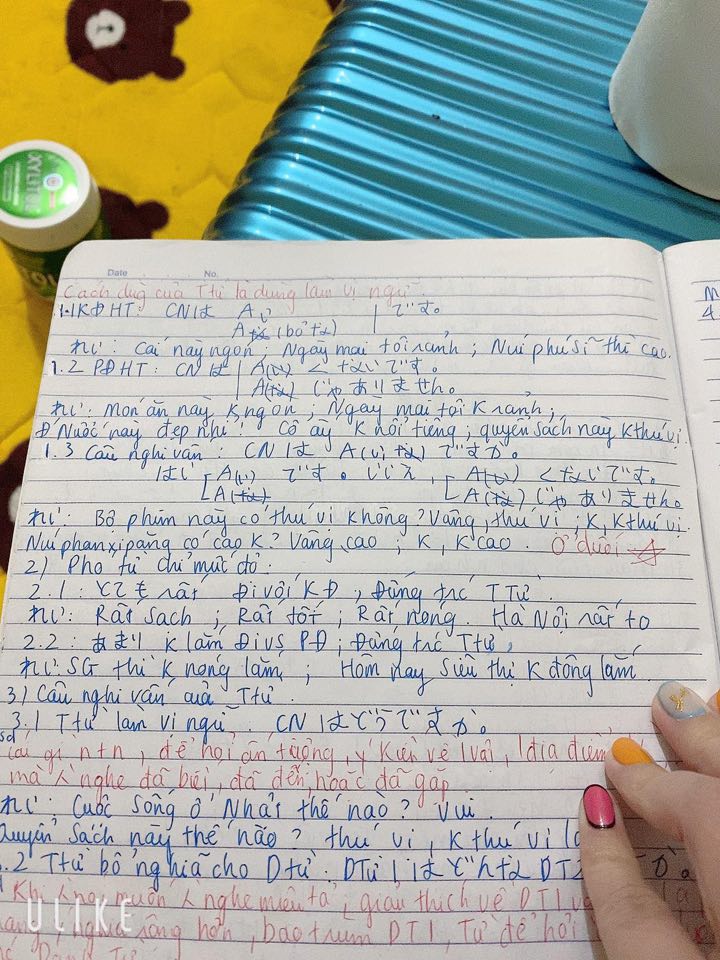 XYLITOL
Date No.
Cách dùg của Ttừ là dùng làm vị ngữ.
1.1 KĐHT: CNは Aい
Aな (bỏ な) | です。
れい: Cái này ngon; Ngày mai tôi rảnh; Núi phú sĩ thì cao.
1.2 PĐHT: CNは | A(い) くないです。
A(な) じゃありません。
れい: Món ăn này k ngon; Ngày mai tôi k rảnh;
Đ Nước này đẹp nhỉ! Cô ấy k nổi tiếng; quyển sách này k thú vị.
1.3 Câu nghi vấn: CNは A(い, な) ですか。
はい [ A(い) です。 いいえ, [ A(い) くないです。
A(な) A(な) じゃありません。
れい: Bộ phim này có thú vị không? Vâng, thú vị; k, k thú vị.
Núi phanxipăng có cao k? Vâng cao; k, k cao. Ở dưới ☆
2) Phó từ chỉ mức độ:
2.1: とても rất Đi với KĐ, Đứng trc TTừ.
れい: Rất sạch; Rất tốt; Rất nóng. Hà Nội rất to
2.2: あまり k lắm Đi vs PĐ; Đứng trc Ttừ,
れい: SG thì k nóng lắm; Hôm nay siêu thị k đông lắm.
3) Câu nghi vấn của Ttừ
3.1 Ttừ làm vị ngữ. CNはどうですか。
cái gì ntn, để hỏi ấn tượng, ý kiến về 1 vài, địa điểm
mà ng nghe đã biết, đã đến hoặc đã gặp.
れい: Cuộc sống ở Nhật thế nào? Vui.
Quyển sách này thế nào? thú vị, k thú vị
.2 Ttừ bổ nghĩa cho Dtừ: DTừ1はどんなDT2
Khi ng nói muốn ng nghe miêu tả, giải thích về DT1
nghĩa rộng hơn, bao trùm DT1, Từ để hỏi
Danh Từ
ULIKE